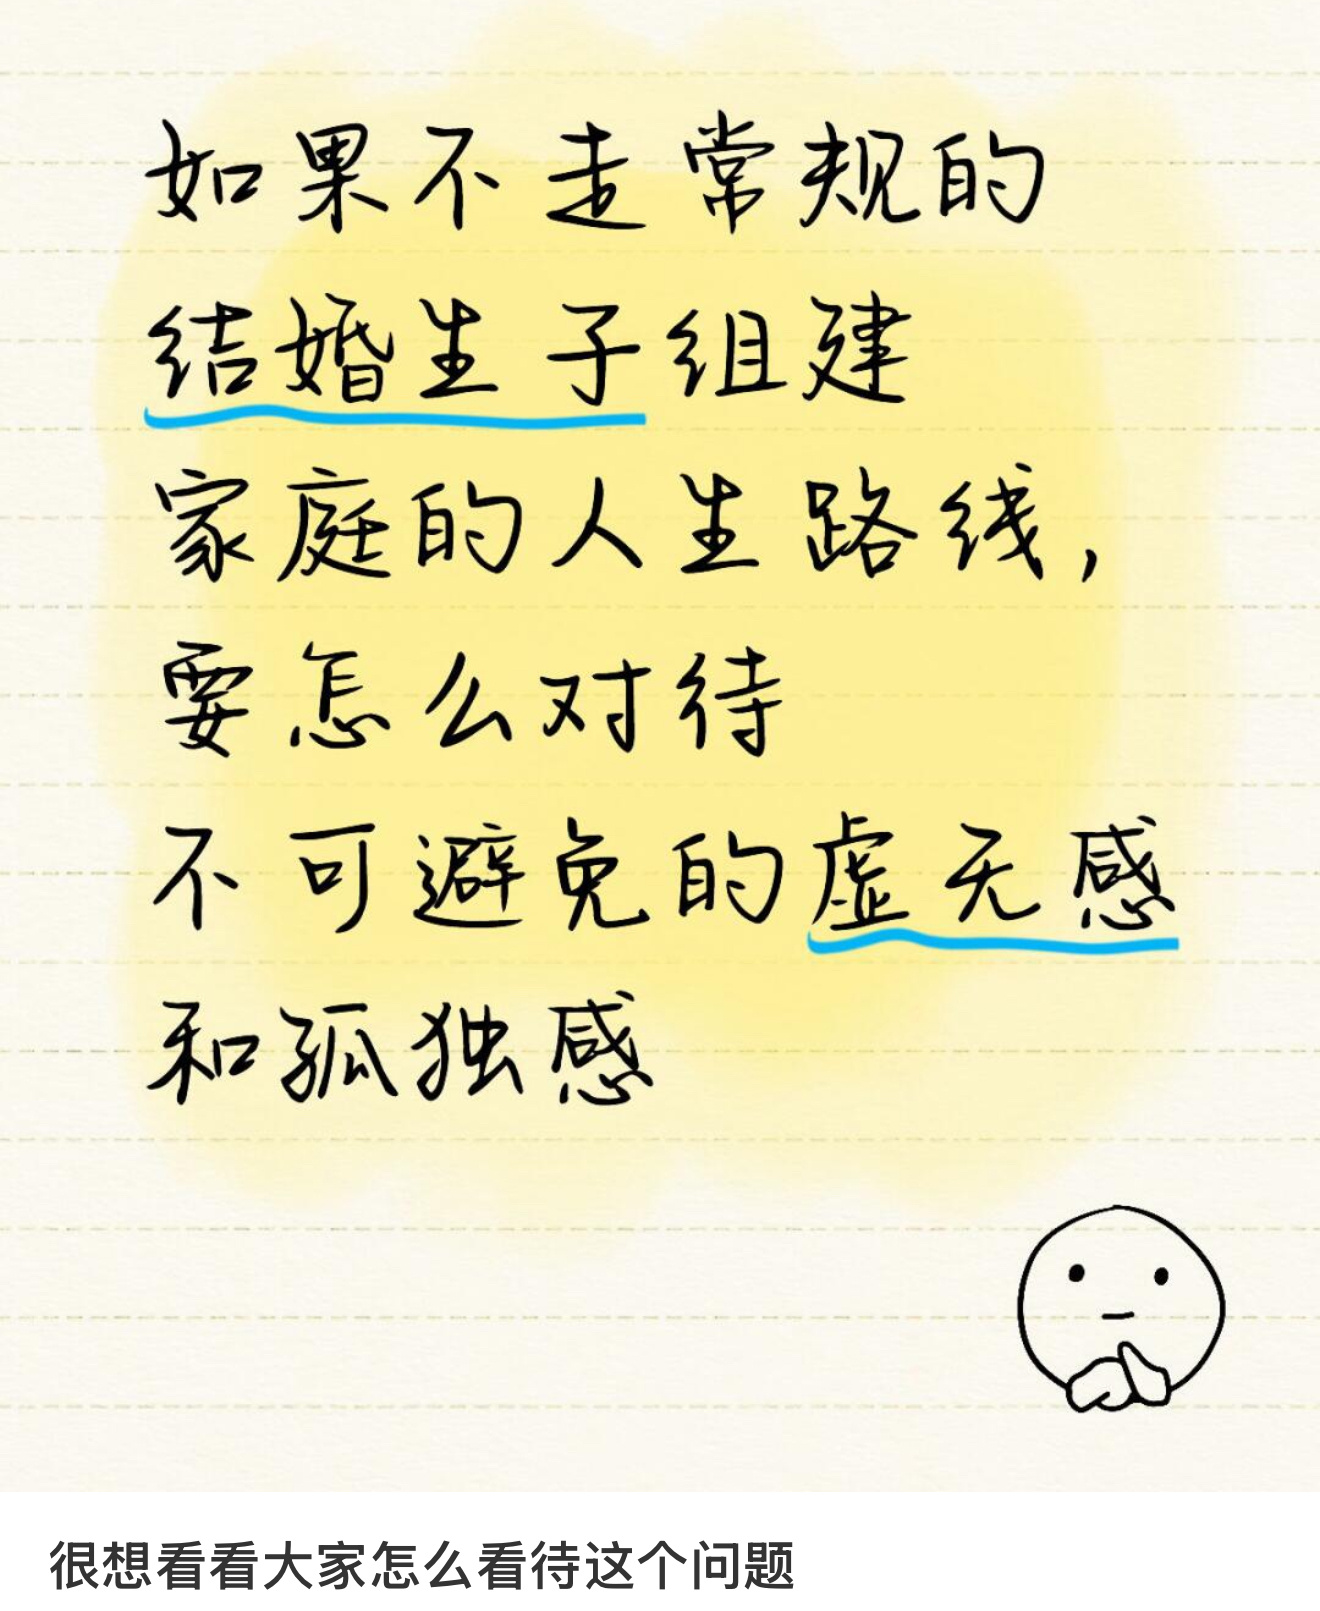 如果不走常规的
结婚生子组建
家庭的人生路线，
要怎么对待
不可避免的虚无感
和孤独感
很想看看大家怎么看待这个问题